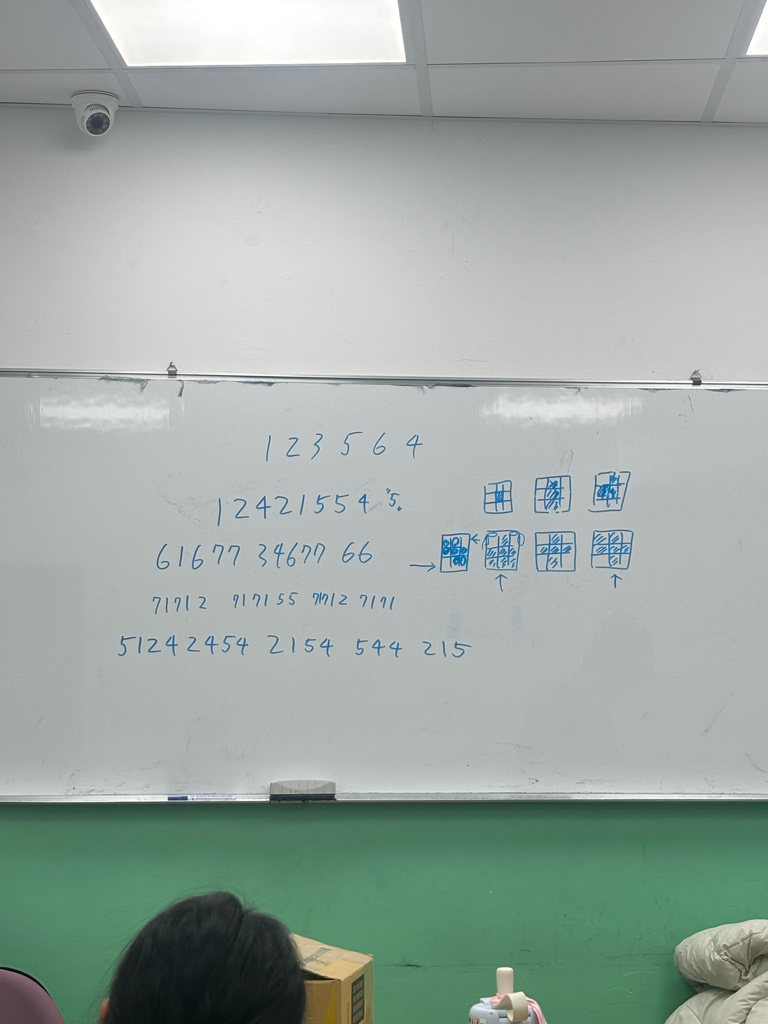 1 2 3 5 6 4
12421554 "5"
61677 34677 66
71712 717155 71712 7171
51242454 2154 544 215